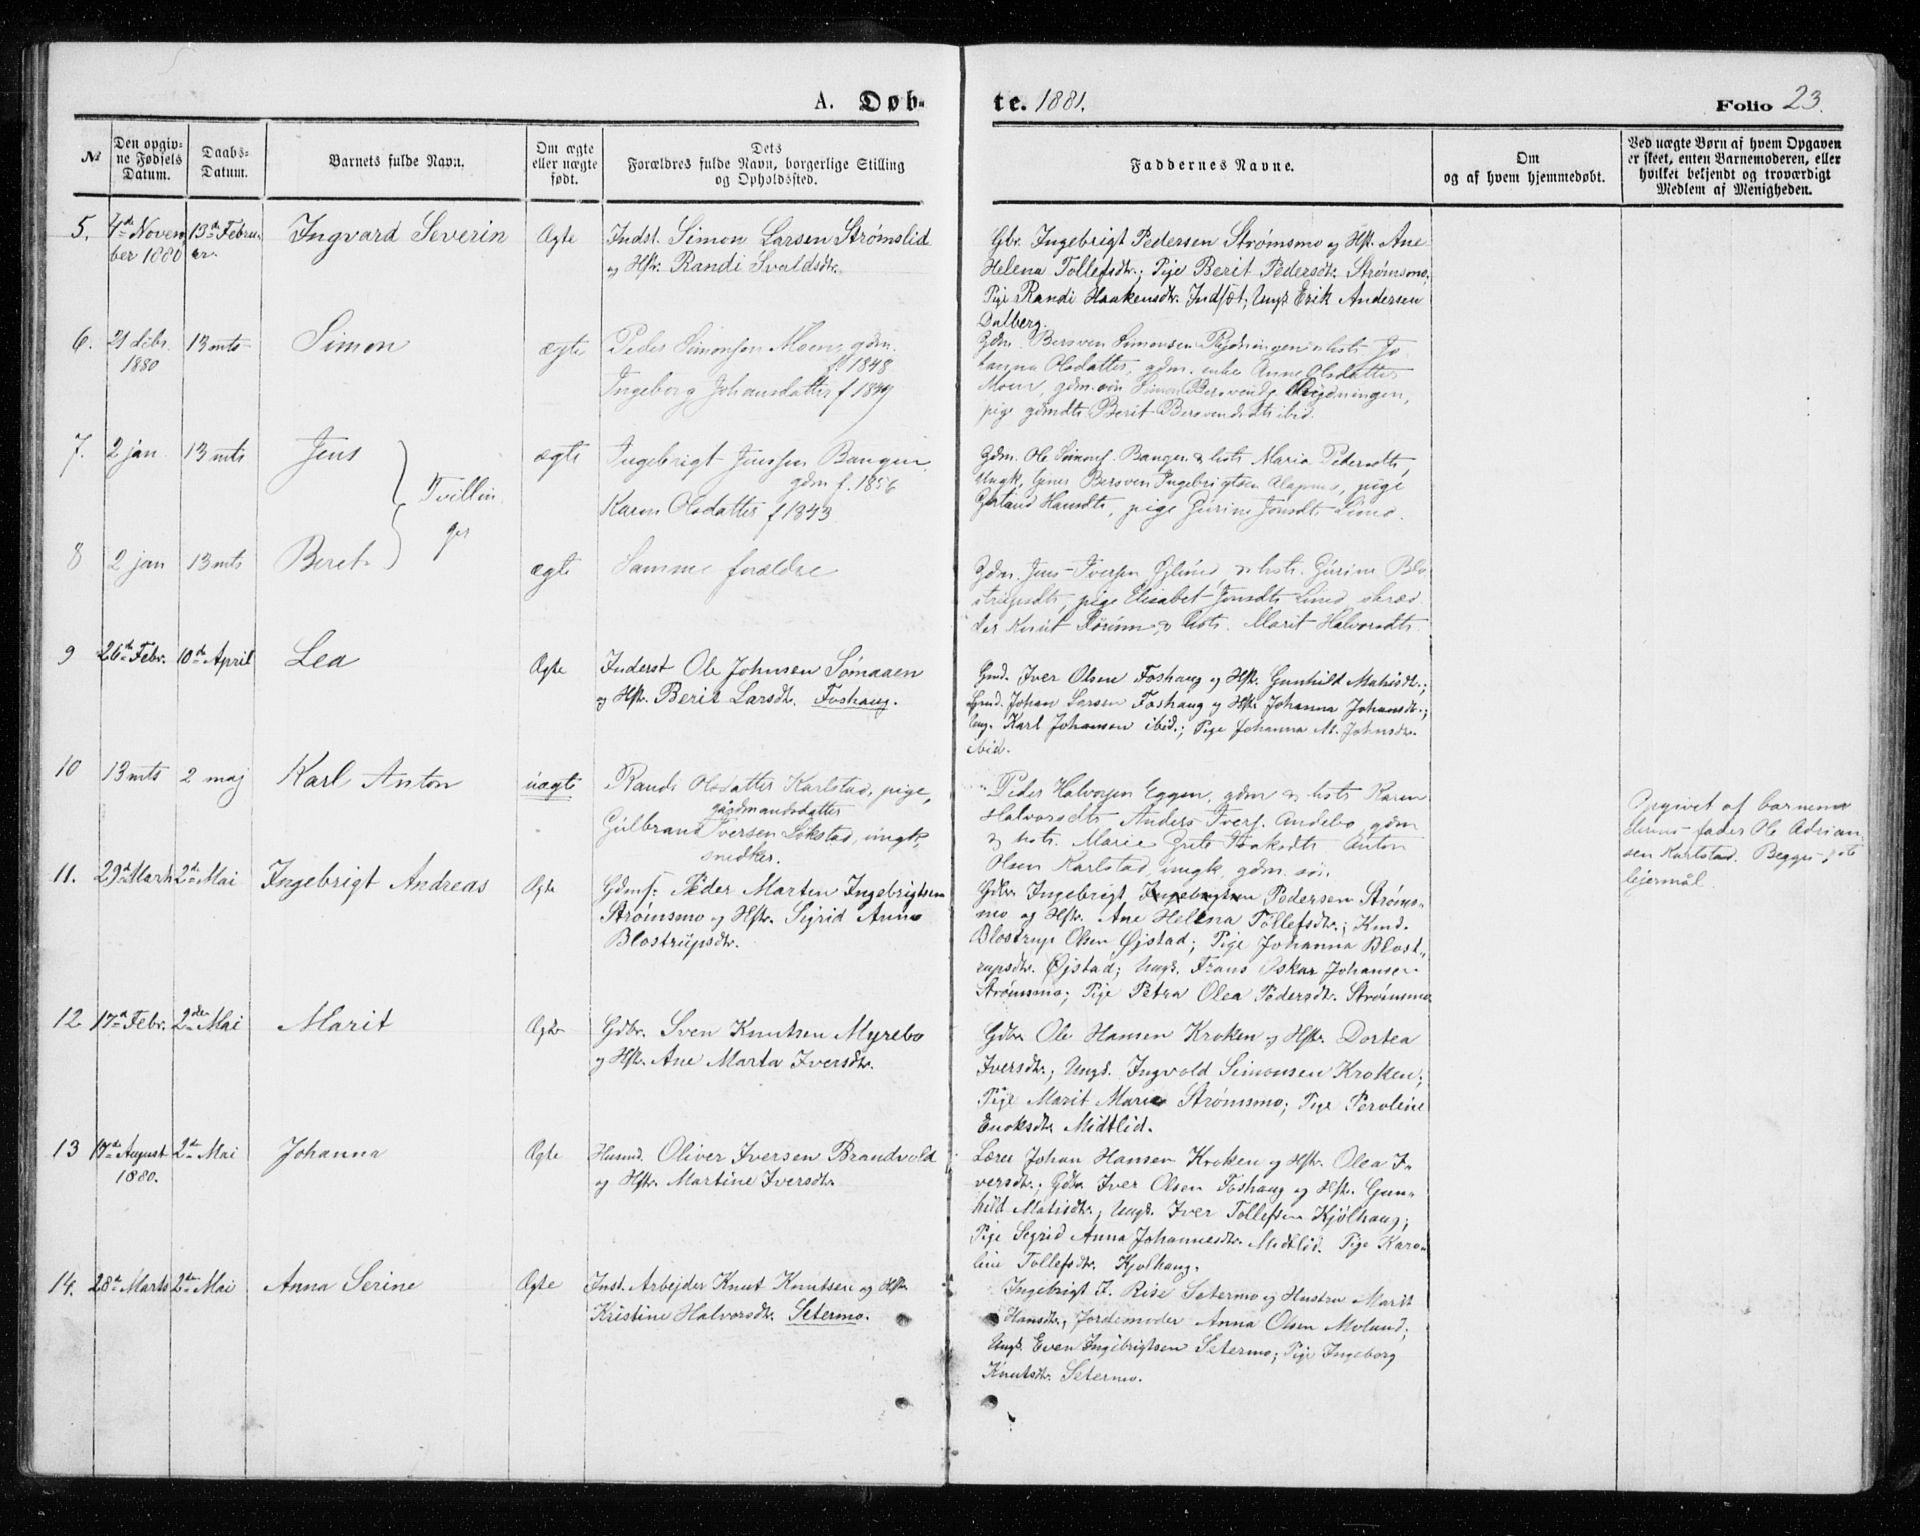 A. Døb-
te. 1881.
Folio 23.
№
Den opgiv-
ne Fødsels
Datum.
Daabs-
Datum.
Barnets fulde Navn.
Om ægte
eller uægte
født.
Dets
Forældres fulde Navn, borgerlige Stilling
og Opholdssted.
Faddernes Navne.
Om
og af hvem hjemmedøbt.
Ved uægte Børn af hvem Opgaven
er skeet, enten Barnemoderen, eller
hvilket bekjendt og troværdigt
Medlem af Menigheden.
5.
4de Novem
ber 1880
13de Febru
ar.
Ingvard Severin
Ægte
Indst. Simon Larsen Strømslid
og Hstr. Randi Svaldsdtr.
Gbr. Ingebrigt Pedersen Strømsmo og Hst. Ane
Helena Tollefsdtr.; Pige Berit Pedersdtr. Strømsmo,
Pige Randi Haakensdtr. Indset, Ungk. Erik Andersen
Dalberg.
6.
21 debr.
1880
13 mts
Simon
ægte
Peder Simonsen Moen, gdm.
f. 1848
Ingeborg Johansdatter f 1849
Gdm. Bersven Simonsen & hstr Jo
hanna Olsdatter, gdm. enke Anne Olsdatter
Moen, gdm. søn Simon Bersvends.
pige gdmdtr Berit Bersvendsdtr ibid.
7.
2 jan
13 mts
Jens
Tvillin
ger
ægte
Ingebrigt Jensen Bangen
gdm f. 1856
Karen Olsdatter f 1843
Gdm. Ole Simons. Bangen & hstr Maria Pedersdtr,
Ungk. Bersven Ingebrigtsen pige
Hansdtr, pige Gurine Jonsdtr Lund.
8
2 jan
13 mts
Beret
ægte
Samme forældre
Gdm. Jens Iversen Øglund, & hstr. Gurine Blo
strupsdtr, pige Elisabet Jonsdtr Lund, skræd
der Knut & hstr. Marit Halvorsdtr.
9
26de Febr.
10de April
Lea
Ægte
Inderst Ole Johnsen Sømaaen
og Hst. Berit Larsdtr. Foshaug.
Gmd. Iver Olsen Foshaug og Hst. Gunhild Mathisdtr.;
Gmd. Johan Larsen Foshaug og Hst. Johanna Johansdtr.;
Ung. Karl Johansen ibid.; Pige Johanna M. Johnsdtr.
ibid.
10
13 mts
2 maj
Karl Anton
uægte
Randi Olsdatter Karlstad, pige,
gårdmandsdatter
Gulbrand Iversen Løkstad, ungk,
snedker.
Peder Halvorsen Eggen, gdm & hstr Karen
Halvorsdtr Anders Ivers. Andebo gdm
& hstr. Marie Grete Haaksdtr Anton
Olsen Karlstad, ungk, gdm. søn.
Opgivet af barnemo
derens fader Ole Adrian
sen Karlstad. Begges 1ste
lejermål.
11.
29de Marts
2de Mai
Ingebrigt Andreas
Ægte
Gdmf: Peder Marten Ingebrigtsen
Strømsmo og Hstr. Sigrid Anna
Blostrupsdtr.
Gdbr. Ingebrigt Ingebrigtsen Pedersen Strøms-
mo og Hstr. Ane Helena Tollefsdtr.; Kmd.
Blostrup Olsen Øjstad; Pige Johanna Blost-
rupsdtr. Øjstad; Ungk. Frans Oskar Johansen
Strømsmo; Pige Petra Olea Pedersdtr. Strømsmo
12
17de Febr.
2den Mai
Marit
Ægte
Gdbr. Sven Knutsen Myrebo
og Hst. Ane Marta Iversdtr.
Gdbr Ole Hansen Kroken og Hstr. Dortea
Iversdtr.; Ungk. Ingvold Simonsen Kroken;
Pige Marit Marie Strømsmo; Pige Peroline
Enoksdtr. Midtlid.
13
17de August
1880.
2de Mai
Johanna
Ægte
Husmd. Oliver Iversen Brandvold
og Hstr. Martine Iversdtr.
Lærer Johan Hansen Kroken og Hstr. Olea I-
versdtr.; Gdbr Iver Olsen Foshaug og Hstr. Gun-
hild Matisdtr.; Ungk. Iver Tollefsen Kjølhaug;
Pige Segrid Anna Johannesdtr. Midtlid. Pige Karo-
line Tollefsdtr. Kjølhaug.
14.
28de Marts
2den Mai
Anna Serine
Ægte
Inst. Arbejder Knut Knutsen og Hst.
Kristine Halvorsdtr. Setermo.
Ingebrigt J. Rise Setermo og Hustru Marit
Hansdtr., Jordemoder Anna Olsen Molund;
Ungk. Even Ingebrigtsen Setermo; Pige Ingeborg
Knutsdtr. Setermo.